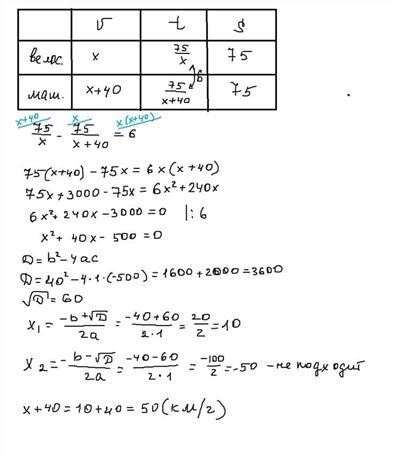 v t S
велос. x 75/x 75
6
маш. x+40 75/x+40 75
x+40 x x(x+40)
75/x - 75/x+40 = 6
75(x+40) - 75x = 6x(x+40)
75x + 3000 - 75x = 6x² + 240x
6x² + 240x - 3000 = 0 |:6
x² + 40x - 500 = 0
D = b² - 4ac
D = 40² - 4·1·(-500) = 1600 + 2000 = 3600
√D = 60
x₁ = -b+√D/2a = -40+60/2·1 = 20/2 = 10
x₂ = -b-√D/2a = -40-60/2·1 = -100/2 = -50 - не подходит
x+40 = 10+40 = 50 (км/г)